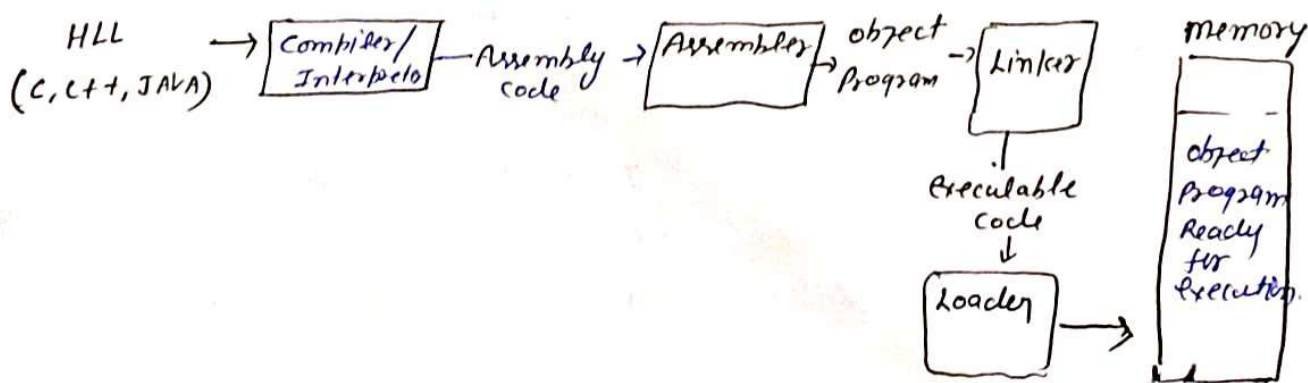 HLL
(C, C++, JAVA)
Compiler/
Interpreto
Assembly
code
Assembler
object
Program
Linker
executable
code
Loader
memory
object
program
Ready
for
execution.